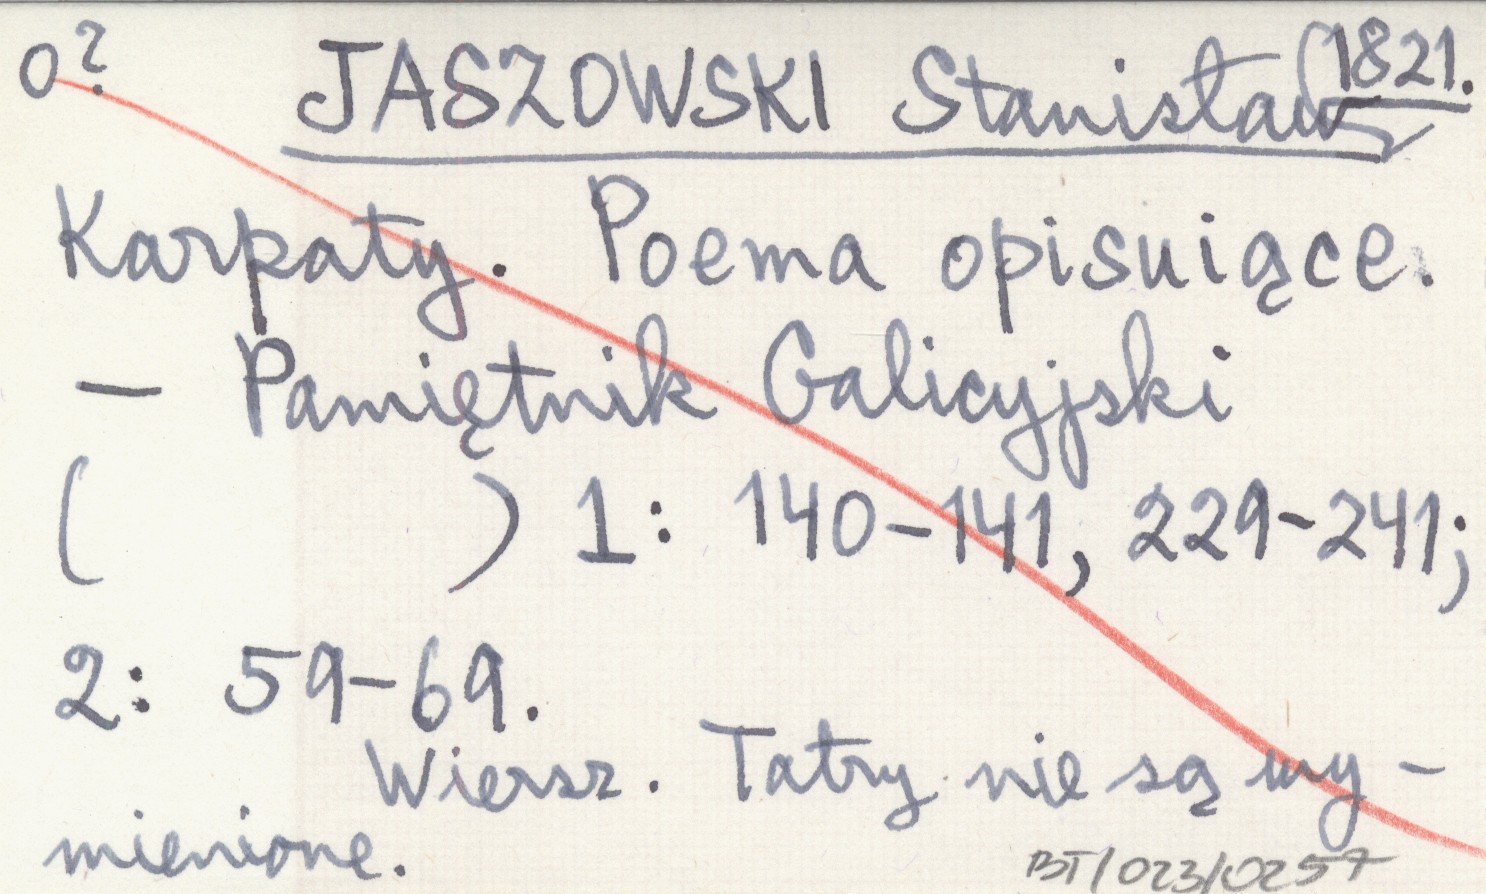 O? JASZOWSKI Stanisław 1821.
Karpaty. Poema opisuiące.
— Pamiętnik Galicyjski
( ) 1: 140-141, 229-241;
2: 59-69.
Wiersz. Tatry nie są wy-
mienione.
BT/023/0257